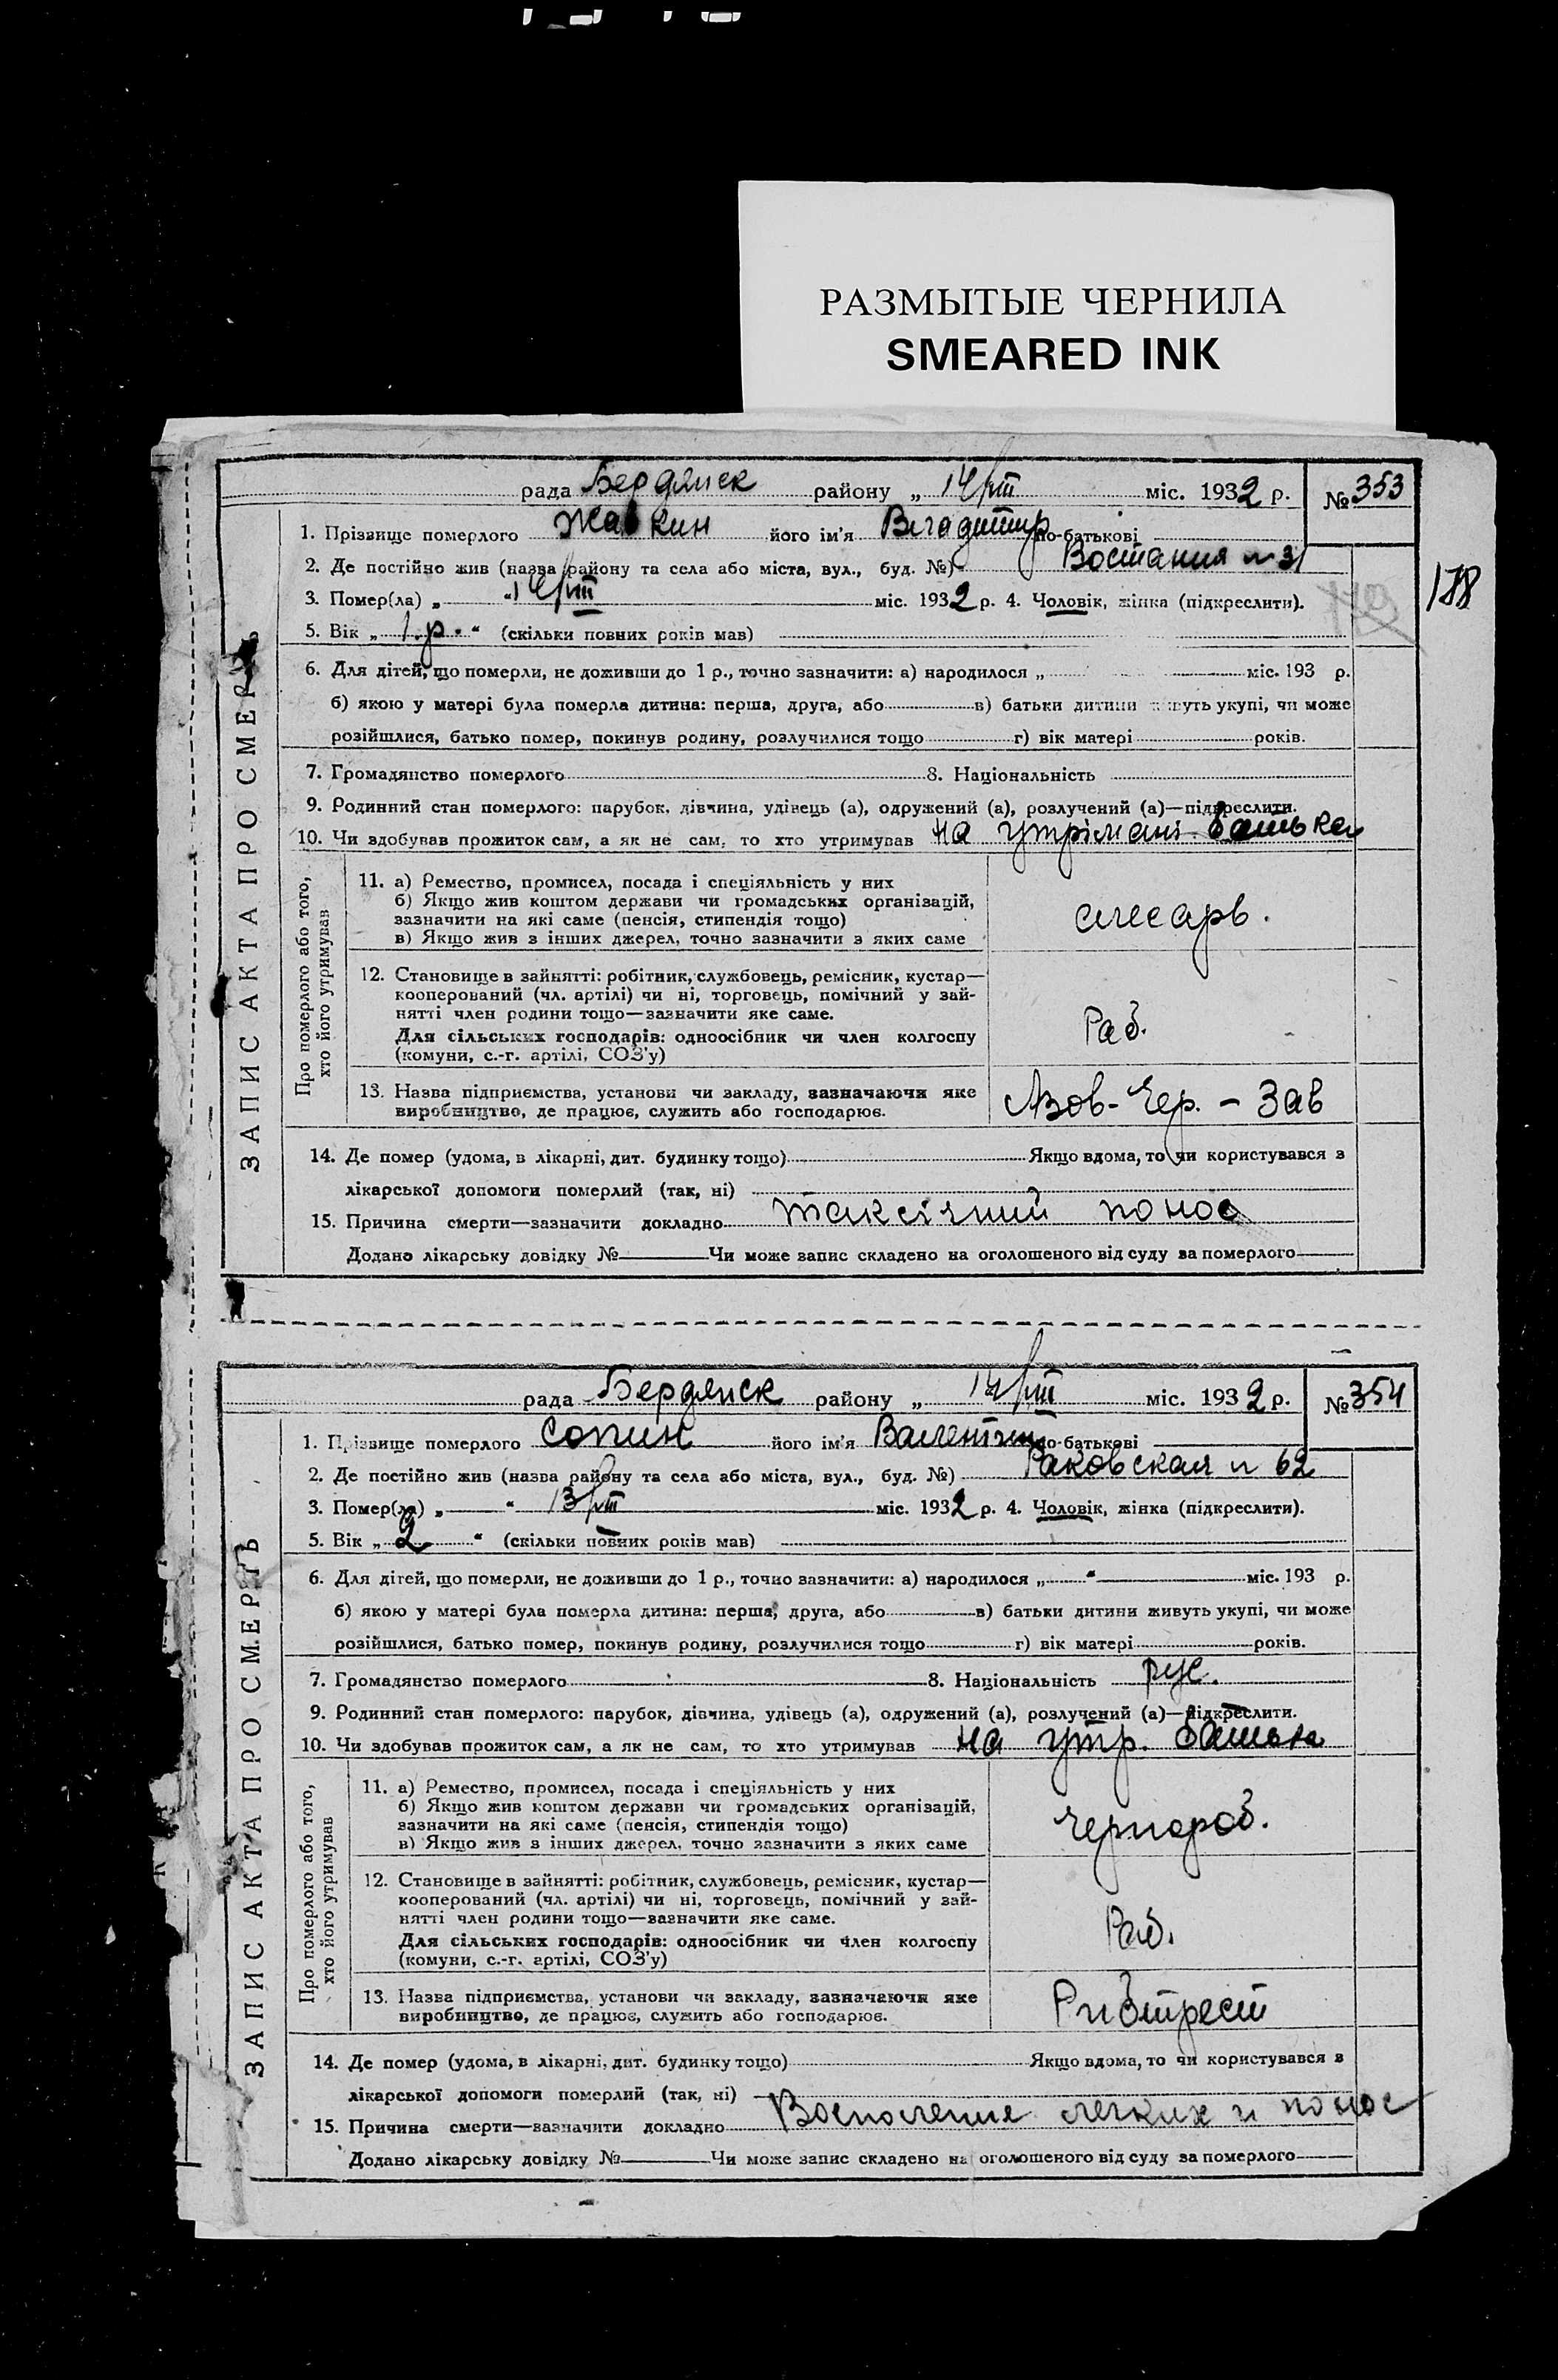 РАЗМЫТЫЕ ЧЕРНИЛА
SMEARED INK
рада Бердянск району „ 14/III міс. 1932 р. № 353
1. Прізвище померлого Жавкин його ім'я Владимир по-батькові
2. Де постійно жив (назва району та села або міста, вул., буд. №) Востания n 31
178
3. Помер(ла) „ “ 14/III міс. 1932 р. 4. Чоловік, жінка (підкреслити).
5. Вік „ 1.р. “ (скільки повних років мав)
6. Для дітей, що померли, не доживши до 1 р., точно зазначити: а) народилося „ міс. 193 р.
б) якою у матері була померла дитина: перша, друга, або в) батьки дитини живуть укупі, чи може
розійшлися, батько помер, покинув родину, розлучилися тощо г) вік матері років.
7. Громадянство померлого 8. Національність
9. Родинний стан померлого: парубок, дівчина, удівець (а), одружений (а), розлучений (а)—підкреслити.
10. Чи здобував прожиток сам, а як не сам, то хто утримував на утрімані батька
ЗАПИС АКТА ПРО СМЕРТЬ
Про померлого або того,
хто його утримував
11. а) Ремество, промисел, посада і спеціяльність у них
б) Якщо жив коштом держави чи громадських організацій,
зазначити на які саме (пенсія, стипендія тощо)
в) Якщо жив з інших джерел, точно зазначити з яких саме
слесарь.
12. Становище в зайнятті: робітник, службовець, ремісник, кустар—
кооперований (чл. артілі) чи ні, торговець, помічний у зай-
нятті член родини тощо—зазначити яке саме.
Для сільських господарів: одноосібник чи член колгоспу
(комуни, с.-г. артілі, СОЗ'у)
Раб.
13. Назва підприємства, установи чи закладу, зазначаючи яке
виробництво, де працює, служить або господарює.
Азов-Чер. - Зав
14. Де помер (удома, в лікарні, дит. будинку тощо) Якщо вдома, то чи користувався з
лікарської допомоги померлий (так, ні)
15. Причина смерти—зазначити докладно таксічний понос
Додано лікарську довідку № Чи може запис складено на оголошеного від суду за померлого
рада Бердянск району „ 14/III міс. 1932 р. № 354
1. Прізвище померлого Сопин його ім'я Валентин по-батькові
2. Де постійно жив (назва району та села або міста, вул., буд. №) Раковская n 62
3. Помер(ла) „ “ 13/III міс. 1932 р. 4. Чоловік, жінка (підкреслити).
5. Вік „ 2 “ (скільки повних років мав)
6. Для дітей, що померли, не доживши до 1 р., точно зазначити: а) народилося „ “ міс. 193 р.
б) якою у матері була померла дитина: перша, друга, або в) батьки дитини живуть укупі, чи може
розійшлися, батько помер, покинув родину, розлучилися тощо г) вік матері років.
7. Громадянство померлого 8. Національність рус.
9. Родинний стан померлого: парубок, дівчина, удівець (а), одружений (а), розлучений (а)—підкреслити.
10. Чи здобував прожиток сам, а як не сам, то хто утримував на утр. батька
ЗАПИС АКТА ПРО СМЕРТЬ
Про померлого або того,
хто його утримував
11. а) Ремество, промисел, посада і спеціяльність у них
б) Якщо жив коштом держави чи громадських організацій,
зазначити на які саме (пенсія, стипендія тощо)
в) Якщо жив з інших джерел, точно зазначити з яких саме
чернороб.
12. Становище в зайнятті: робітник, службовець, ремісник, кустар—
кооперований (чл. артілі) чи ні, торговець, помічний у зай-
нятті член родини тощо—зазначити яке саме.
Для сільських господарів: одноосібник чи член колгоспу
(комуни, с.-г. артілі, СОЗ'у)
Раб.
13. Назва підприємства, установи чи закладу, зазначаючи яке
виробництво, де працює, служить або господарює.
Рибтрест
14. Де помер (удома, в лікарні, дит. будинку тощо) Якщо вдома, то чи користувався з
лікарської допомоги померлий (так, ні)
15. Причина смерти—зазначити докладно Восполение легких и понос
Додано лікарську довідку № Чи може запис складено на оголошеного від суду за померлого